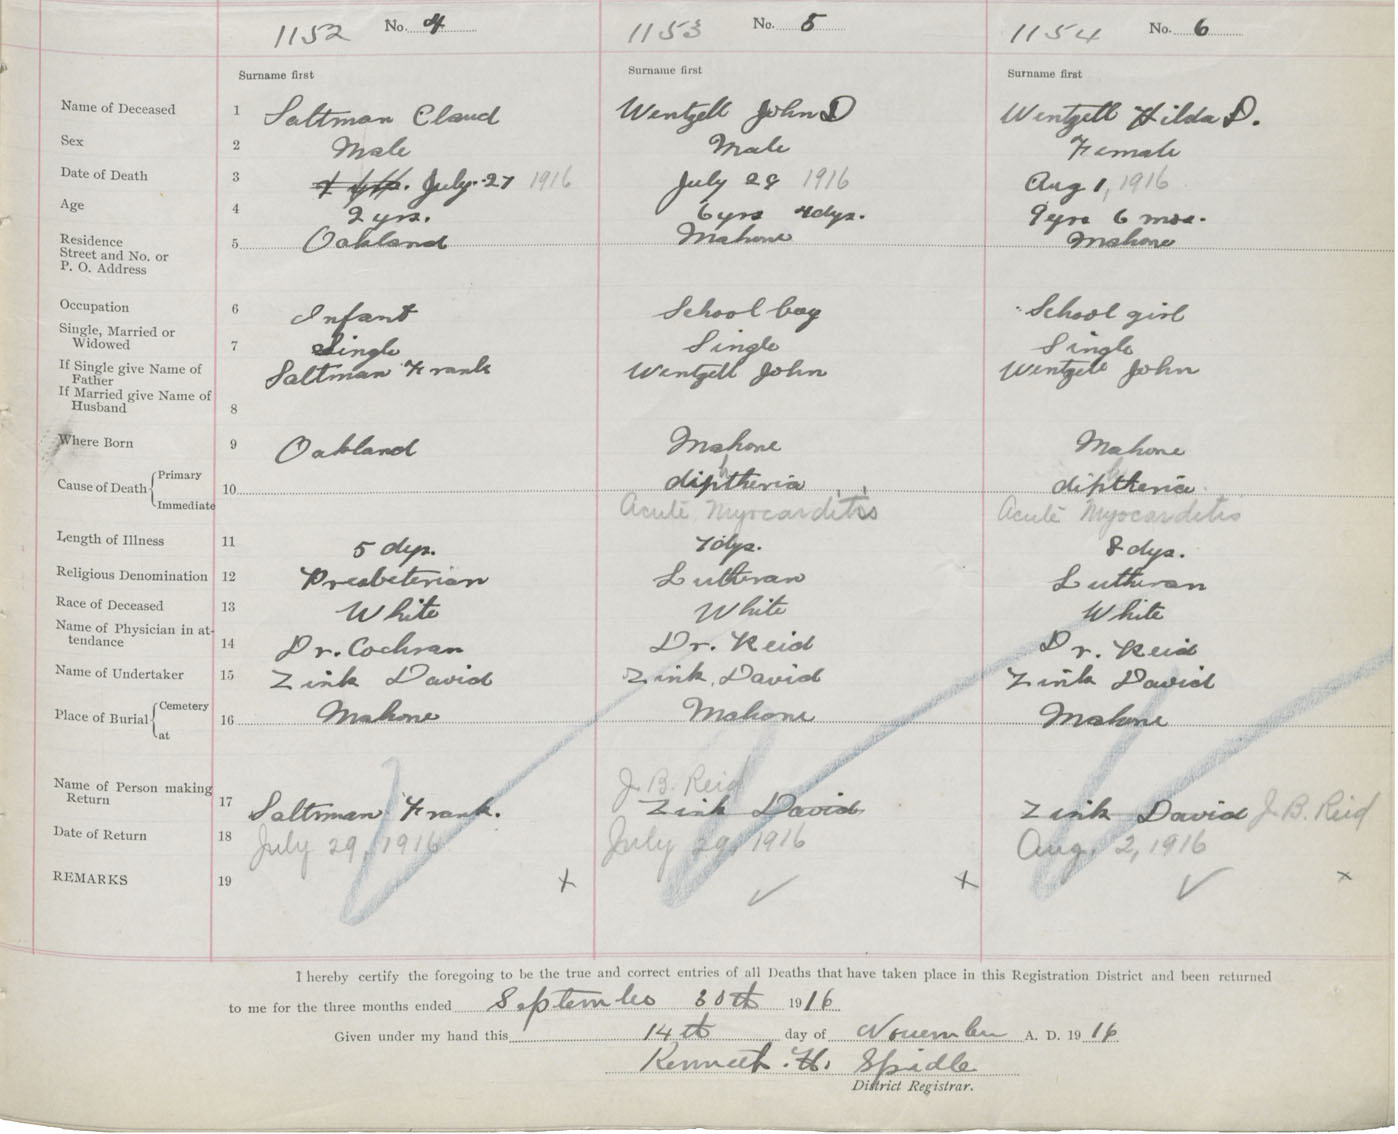 1152 No. 4 1153 No. 5 1154 No. 6
Surname first Surname first Surname first
Name of Deceased 1 Saltman Claud Wentzell John D Wentzell Hilda D.
Sex 2 Male Male Female
Date of Death 3 July 27 1916 July 28 1916 Aug 1, 1916
Age 4 2 yrs. 6 yrs 4 dys. 9 yrs 6 mos.
Residence
Street and No. or
P. O. Address 5 Oakland Mahone Mahone
Occupation 6 Infant School boy School girl
Single, Married or
Widowed 7 Single Single Single
If Single give Name of
Father Saltman Frank Wentzell John Wentzell John
If Married give Name of
Husband 8
Where Born 9 Oakland Mahone Mahone
Cause of Death Primary 10 diptheria diptheria
Immediate Acute Myocarditis Acute Myocarditis
Length of Illness 11 5 dys. 7 dys. 8 dys.
Religious Denomination 12 Presbeterian Lutheran Lutheran
Race of Deceased 13 White White White
Name of Physician in at-
tendance 14 Dr. Cochran Dr. Reid Dr. Reid
Name of Undertaker 15 Zink David Zink, David Zink David
Place of Burial Cemetery 16 Mahone Mahone Mahone
at
Name of Person making
Return 17 Saltman Frank. J. B. Reid Zink David Zink David J. B. Reid
Date of Return 18 July 29, 1916 July 29, 1916 Aug. 2, 1916
REMARKS 19 x x x
I hereby certify the foregoing to be the true and correct entries of all Deaths that have taken place in this Registration District and been returned
to me for the three months ended September 30th 1916
Given under my hand this 14th day of November A. D. 1916
Kenneth H. Spidle
District Registrar.